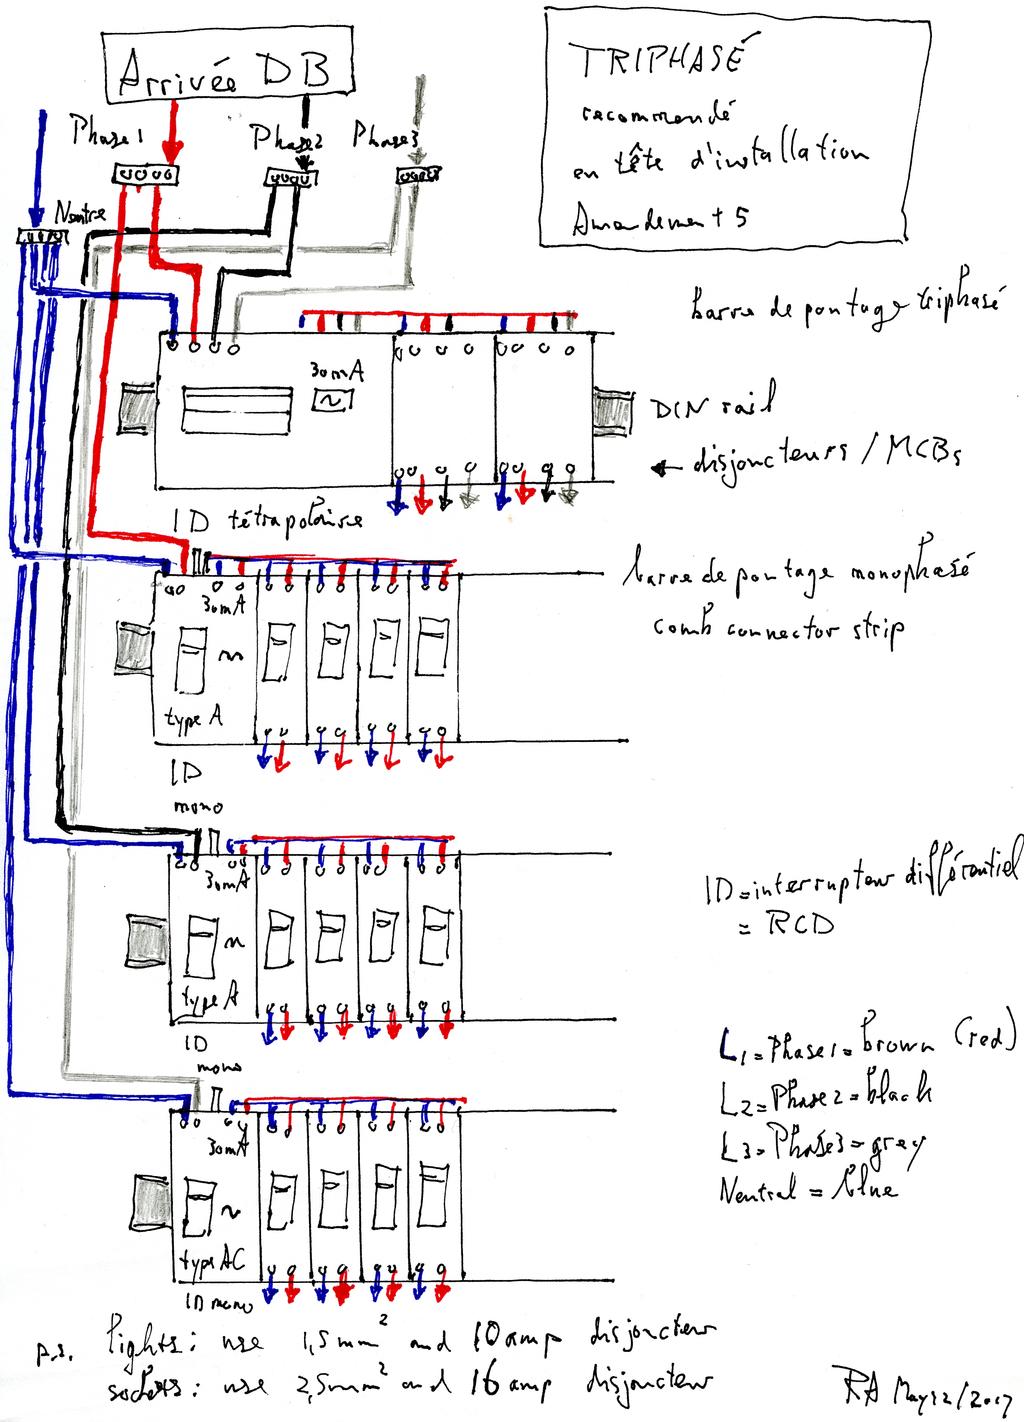 Arrivée DB
TRIPHASÉ
recommandé
en tête d'installation
Amandement 5
Phase1
Phase2
Phase3
Neutre
barre de pontage triphasé
30mA
~
DIN rail
← disjoncteurs / MCBs
ID tétrapolaire
barre de pontage monophasé
comb connector strip
30mA
~
type A
ID
mono
30mA
~
type A
ID
mono
ID = interrupteur différentiel
= RCD
L1 = Phase1 = brown (red)
L2 = Phase2 = black
L3 = Phase3 = grey
Neutral = blue
30mA
~
type AC
ID mono
p.s. lights: use 1,5mm² and 10 amp disjoncteur
sockets: use 2,5mm² and 16 amp disjoncteur
RA May 12/2017